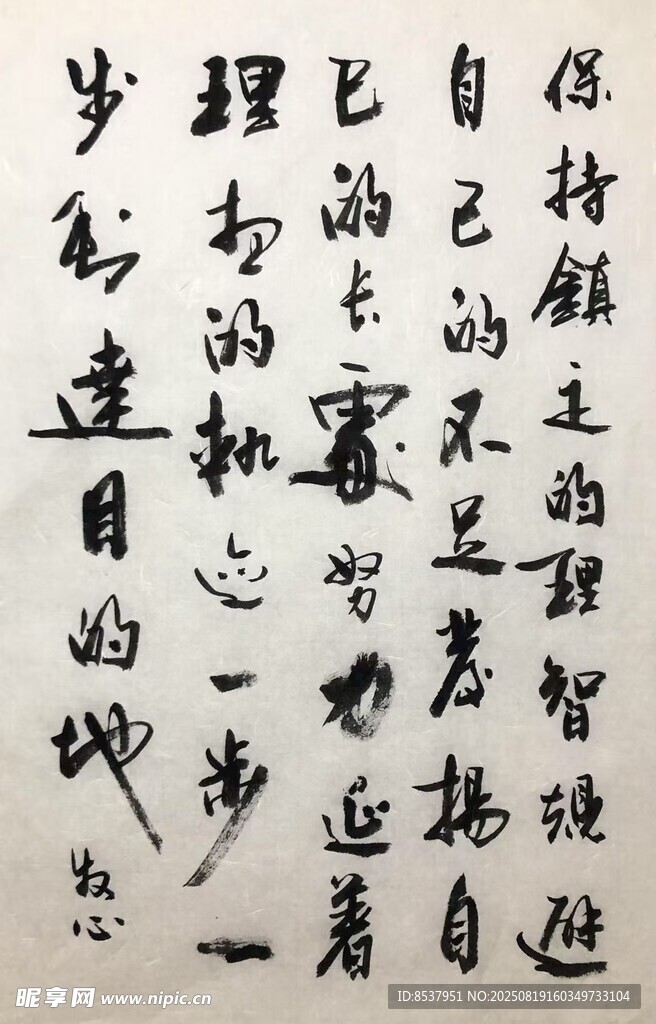 保持鎮定的理智規避
自己的不足發揚自
己的长處努力延着
理想的軌迹一步一
步到達目的地
牧心
昵享网 www.nipic.cn
ID:8537951 NO:20250819160349733104